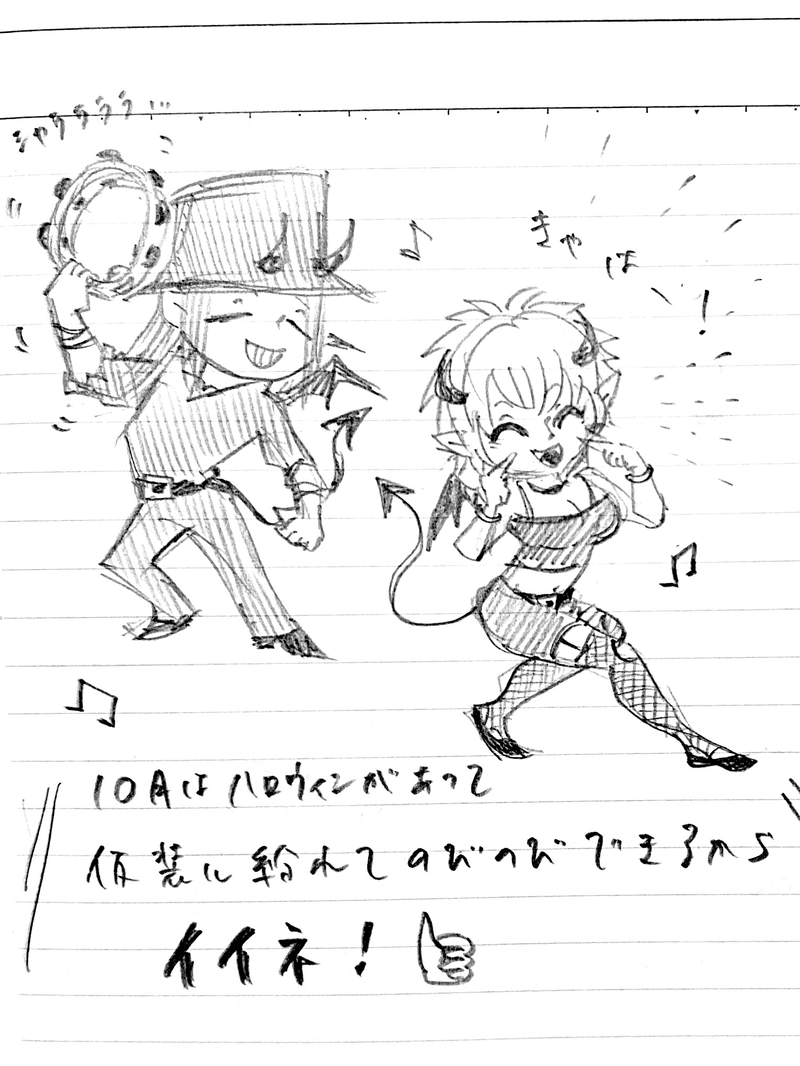 シャラララララ…
きゃ
は
!
10月はハロウィンがあって
仮装に紛れてのびのびできるから
イイネ!